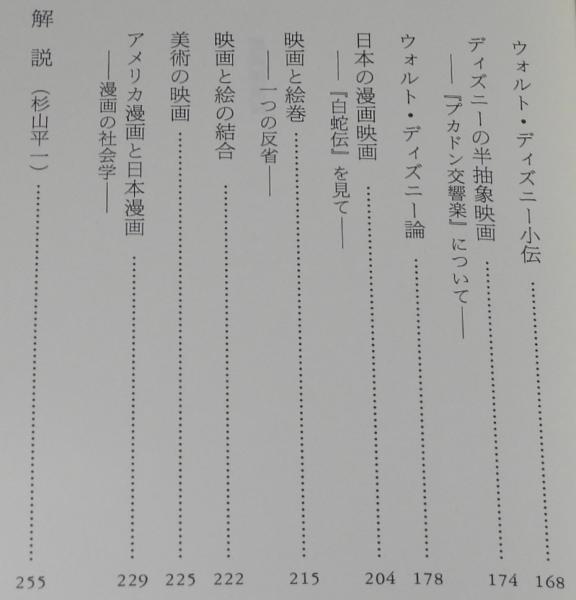 ウォルト・ディズニー小伝……168
ディズニーの半抽象映画
――『プカドン交響楽』について――……174
ウォルト・ディズニー論……178
日本の漫画映画
――『白蛇伝』を見て――……204
映画と絵巻
――一つの反省――……215
映画と絵の結合……222
美術の映画……225
アメリカ漫画と日本漫画
――漫画の社会学――……229
解説（杉山平一）……255